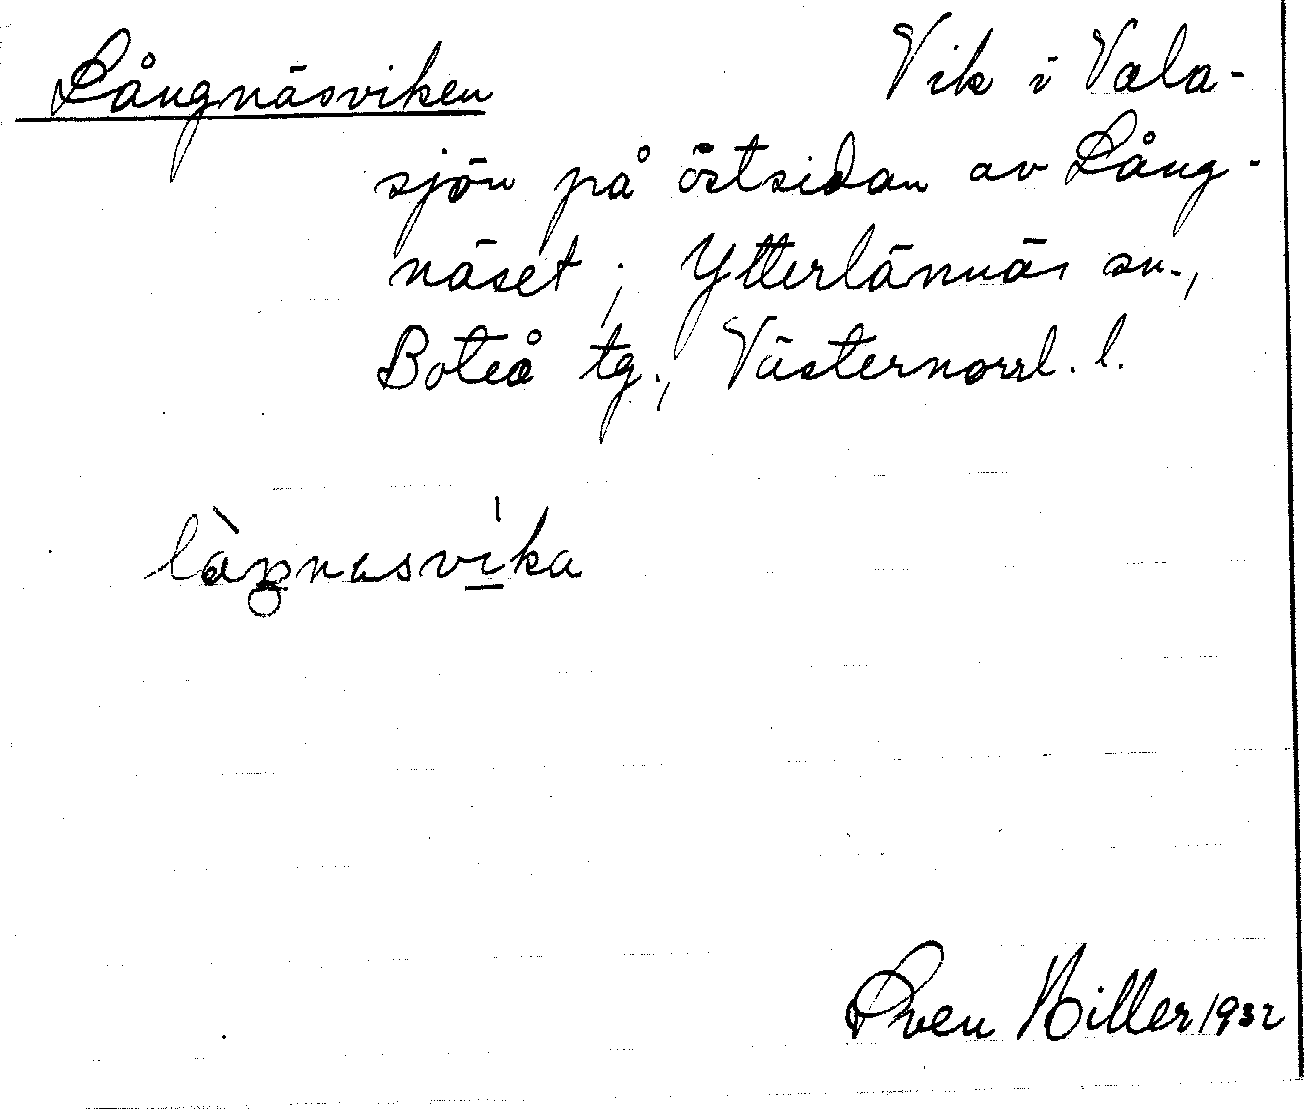 Långnäsviken Vik i Vala-
sjön på östsidan av Lång-
näset; Ytterlännäs sn.,
Boteå tg., Västernorrl. l.
Sven Hiller 1932